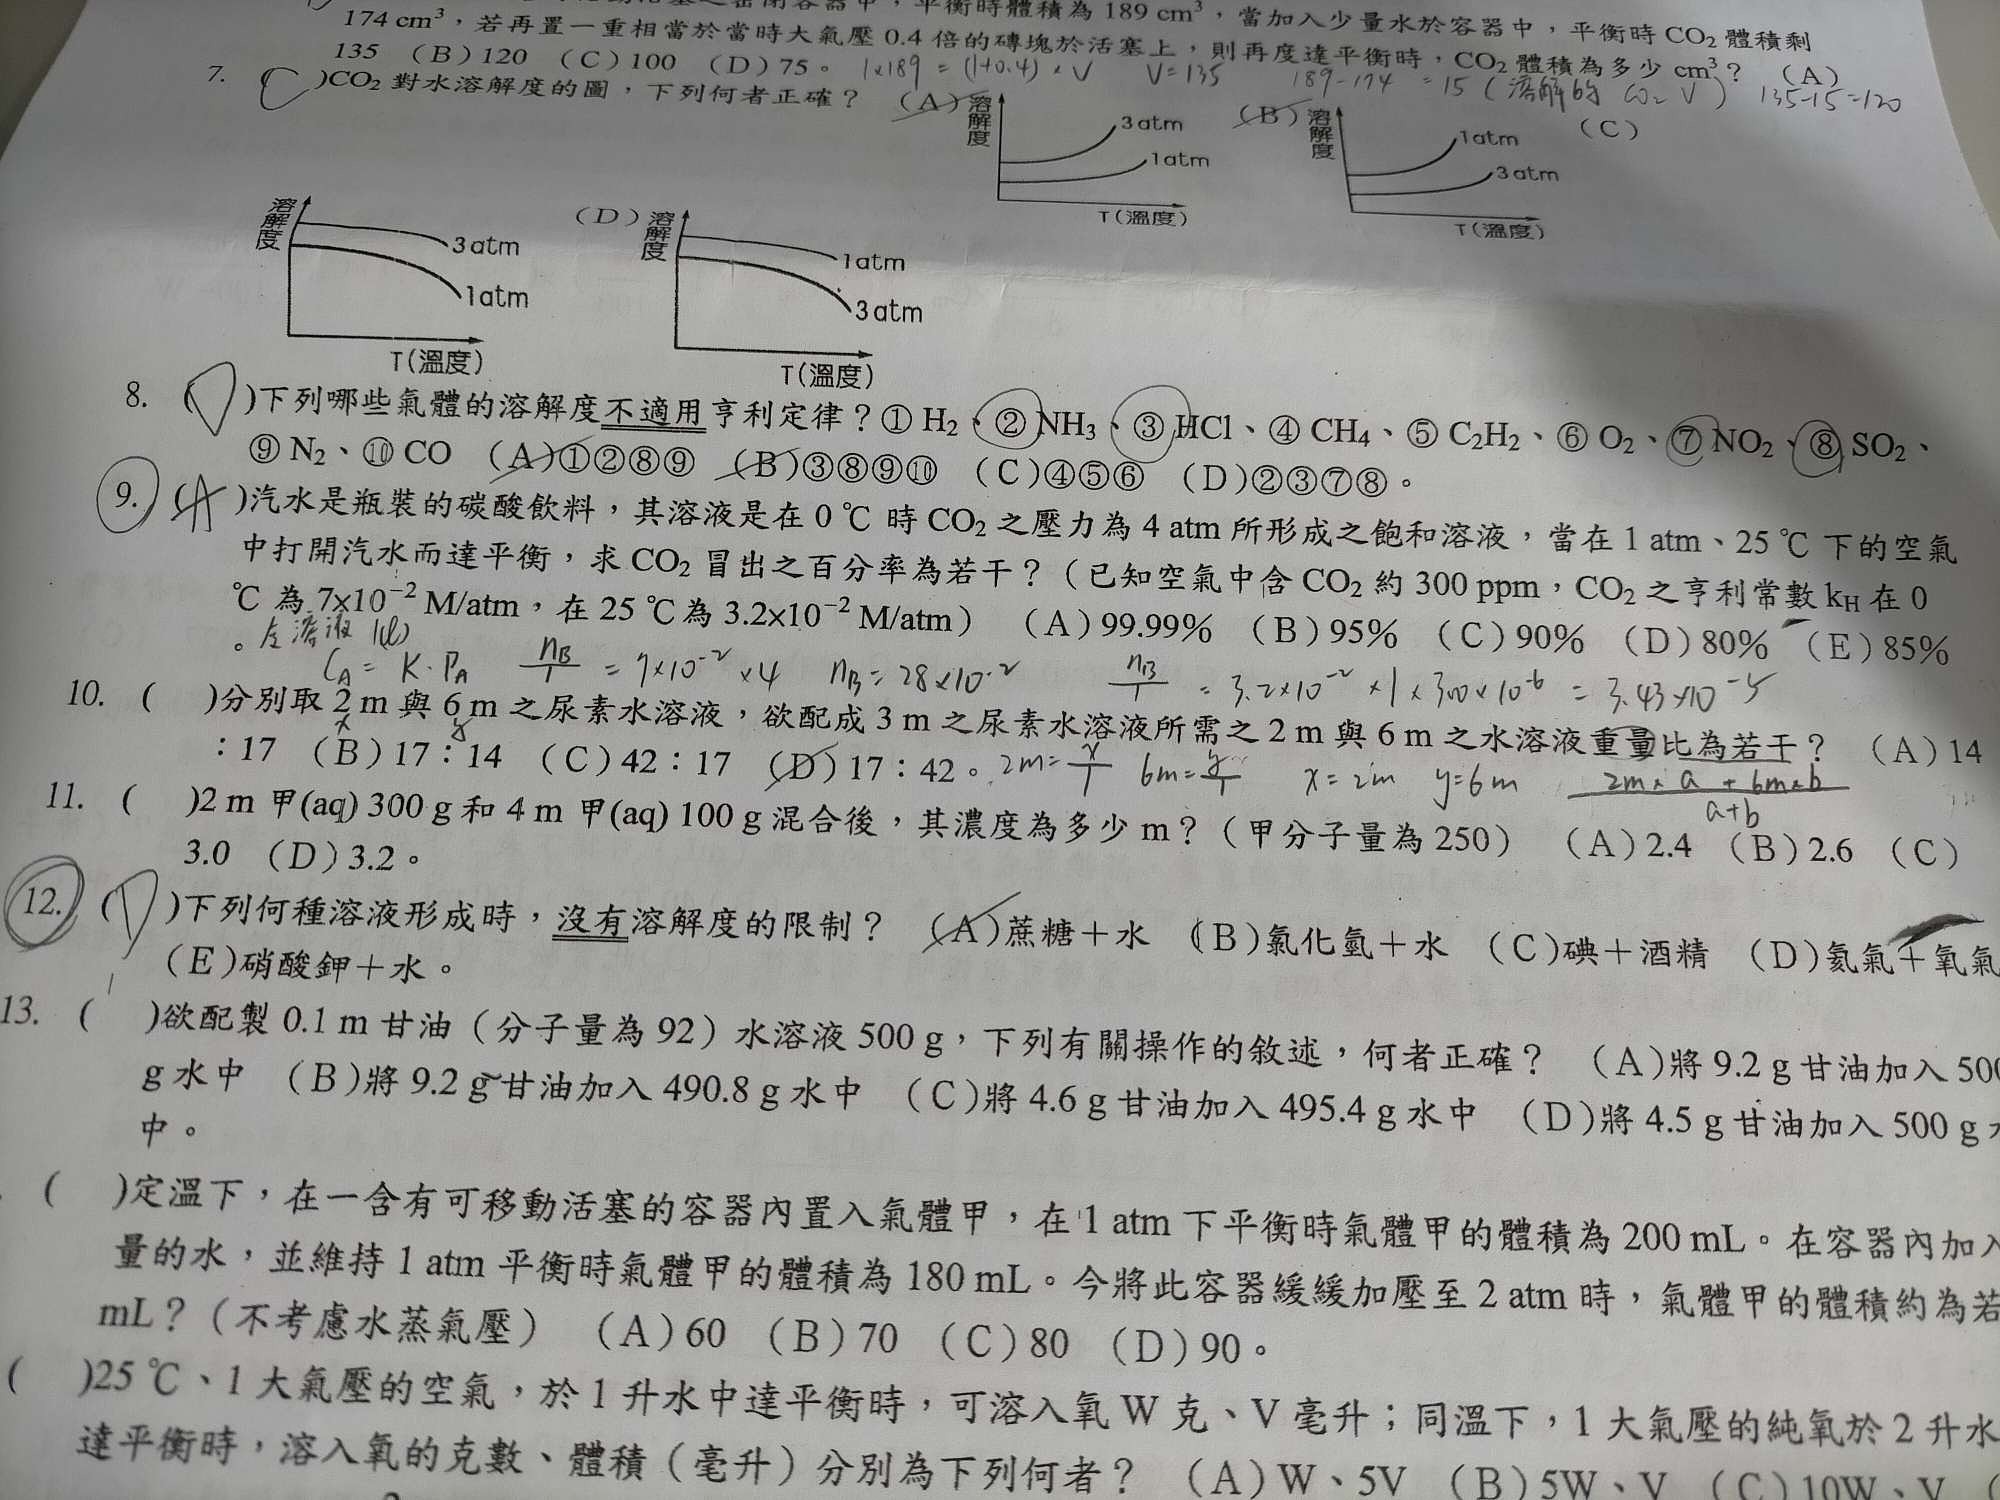 平衡時體積為 189 cm³，當加入少量水於容器中，平衡時 CO₂ 體積剩
174 cm³，若再置一重相當於當時大氣壓 0.4 倍的磚塊於活塞上，則再度達平衡時，CO₂ 體積為多少 cm³？ (A)
135 (B) 120 (C) 100 (D) 75。 1×189 = (1+0.4)×V V=135 189-174 = 15 (溶解的 CO₂ V) 135-15=120
7. (C)CO₂ 對水溶解度的圖，下列何者正確？ (A) (B) (C)
溶解度 3 atm 1 atm T(溫度)
溶解度 1 atm 3 atm T(溫度)
溶解度 3 atm 1 atm T(溫度)
(D) 溶解度 1 atm 3 atm T(溫度)
8. (D)下列哪些氣體的溶解度不適用亨利定律？① H₂、② NH₃、③ HCl、④ CH₄、⑤ C₂H₂、⑥ O₂、⑦ NO₂、⑧ SO₂、
⑨ N₂、⑩ CO (A)①②⑧⑨ (B)③⑧⑨⑩ (C)④⑤⑥ (D)②③⑦⑧。
9. (A)汽水是瓶裝的碳酸飲料，其溶液是在 0 ℃ 時 CO₂ 之壓力為 4 atm 所形成之飽和溶液，當在 1 atm、25 ℃ 下的空氣
中打開汽水而達平衡，求 CO₂ 冒出之百分率為若干？（已知空氣中含 CO₂ 約 300 ppm，CO₂ 之亨利常數 kH 在 0
℃ 為 7×10⁻² M/atm，在 25 ℃ 為 3.2×10⁻² M/atm） (A) 99.99% (B) 95% (C) 90% (D) 80% (E) 85%
。
CA = K·PA nB/1 = 7×10⁻² ×4 nB = 28×10⁻² nB/1 = 3.2×10⁻² ×1×300×10⁻⁶ = 3.43×10⁻⁵
10. ( )分別取 2 m 與 6 m 之尿素水溶液，欲配成 3 m 之尿素水溶液所需之 2 m 與 6 m 之水溶液重量比為若干？ (A) 14
x y
：17 (B) 17：14 (C) 42：17 (D) 17：42。 2m = x/1 6m = y/1 x=2m y=6m (2m×a + 6m×b)/(a+b)
11. ( )2 m 甲(aq) 300 g 和 4 m 甲(aq) 100 g 混合後，其濃度為多少 m？（甲分子量為 250） (A) 2.4 (B) 2.6 (C)
3.0 (D) 3.2。
12. (D)下列何種溶液形成時，沒有溶解度的限制？ (A)蔗糖＋水 (B)氯化氫＋水 (C)碘＋酒精 (D)氦氣＋氧氣
(E)硝酸鉀＋水。
13. ( )欲配製 0.1 m 甘油（分子量為 92）水溶液 500 g，下列有關操作的敘述，何者正確？ (A)將 9.2 g 甘油加入 500
g 水中 (B)將 9.2 g 甘油加入 490.8 g 水中 (C)將 4.6 g 甘油加入 495.4 g 水中 (D)將 4.5 g 甘油加入 500 g
中。
( )定溫下，在一含有可移動活塞的容器內置入氣體甲，在 1 atm 下平衡時氣體甲的體積為 200 mL。在容器內加入
量的水，並維持 1 atm 平衡時氣體甲的體積為 180 mL。今將此容器緩緩加壓至 2 atm 時，氣體甲的體積約為若
mL？（不考慮水蒸氣壓） (A) 60 (B) 70 (C) 80 (D) 90。
( )25 ℃、1 大氣壓的空氣，於 1 升水中達平衡時，可溶入氧 W 克、V 毫升；同溫下，1 大氣壓的純氧於 2 升水
達平衡時，溶入氧的克數、體積（毫升）分別為下列何者？ (A) W、5V (B) 5W、V (C) 10W、V